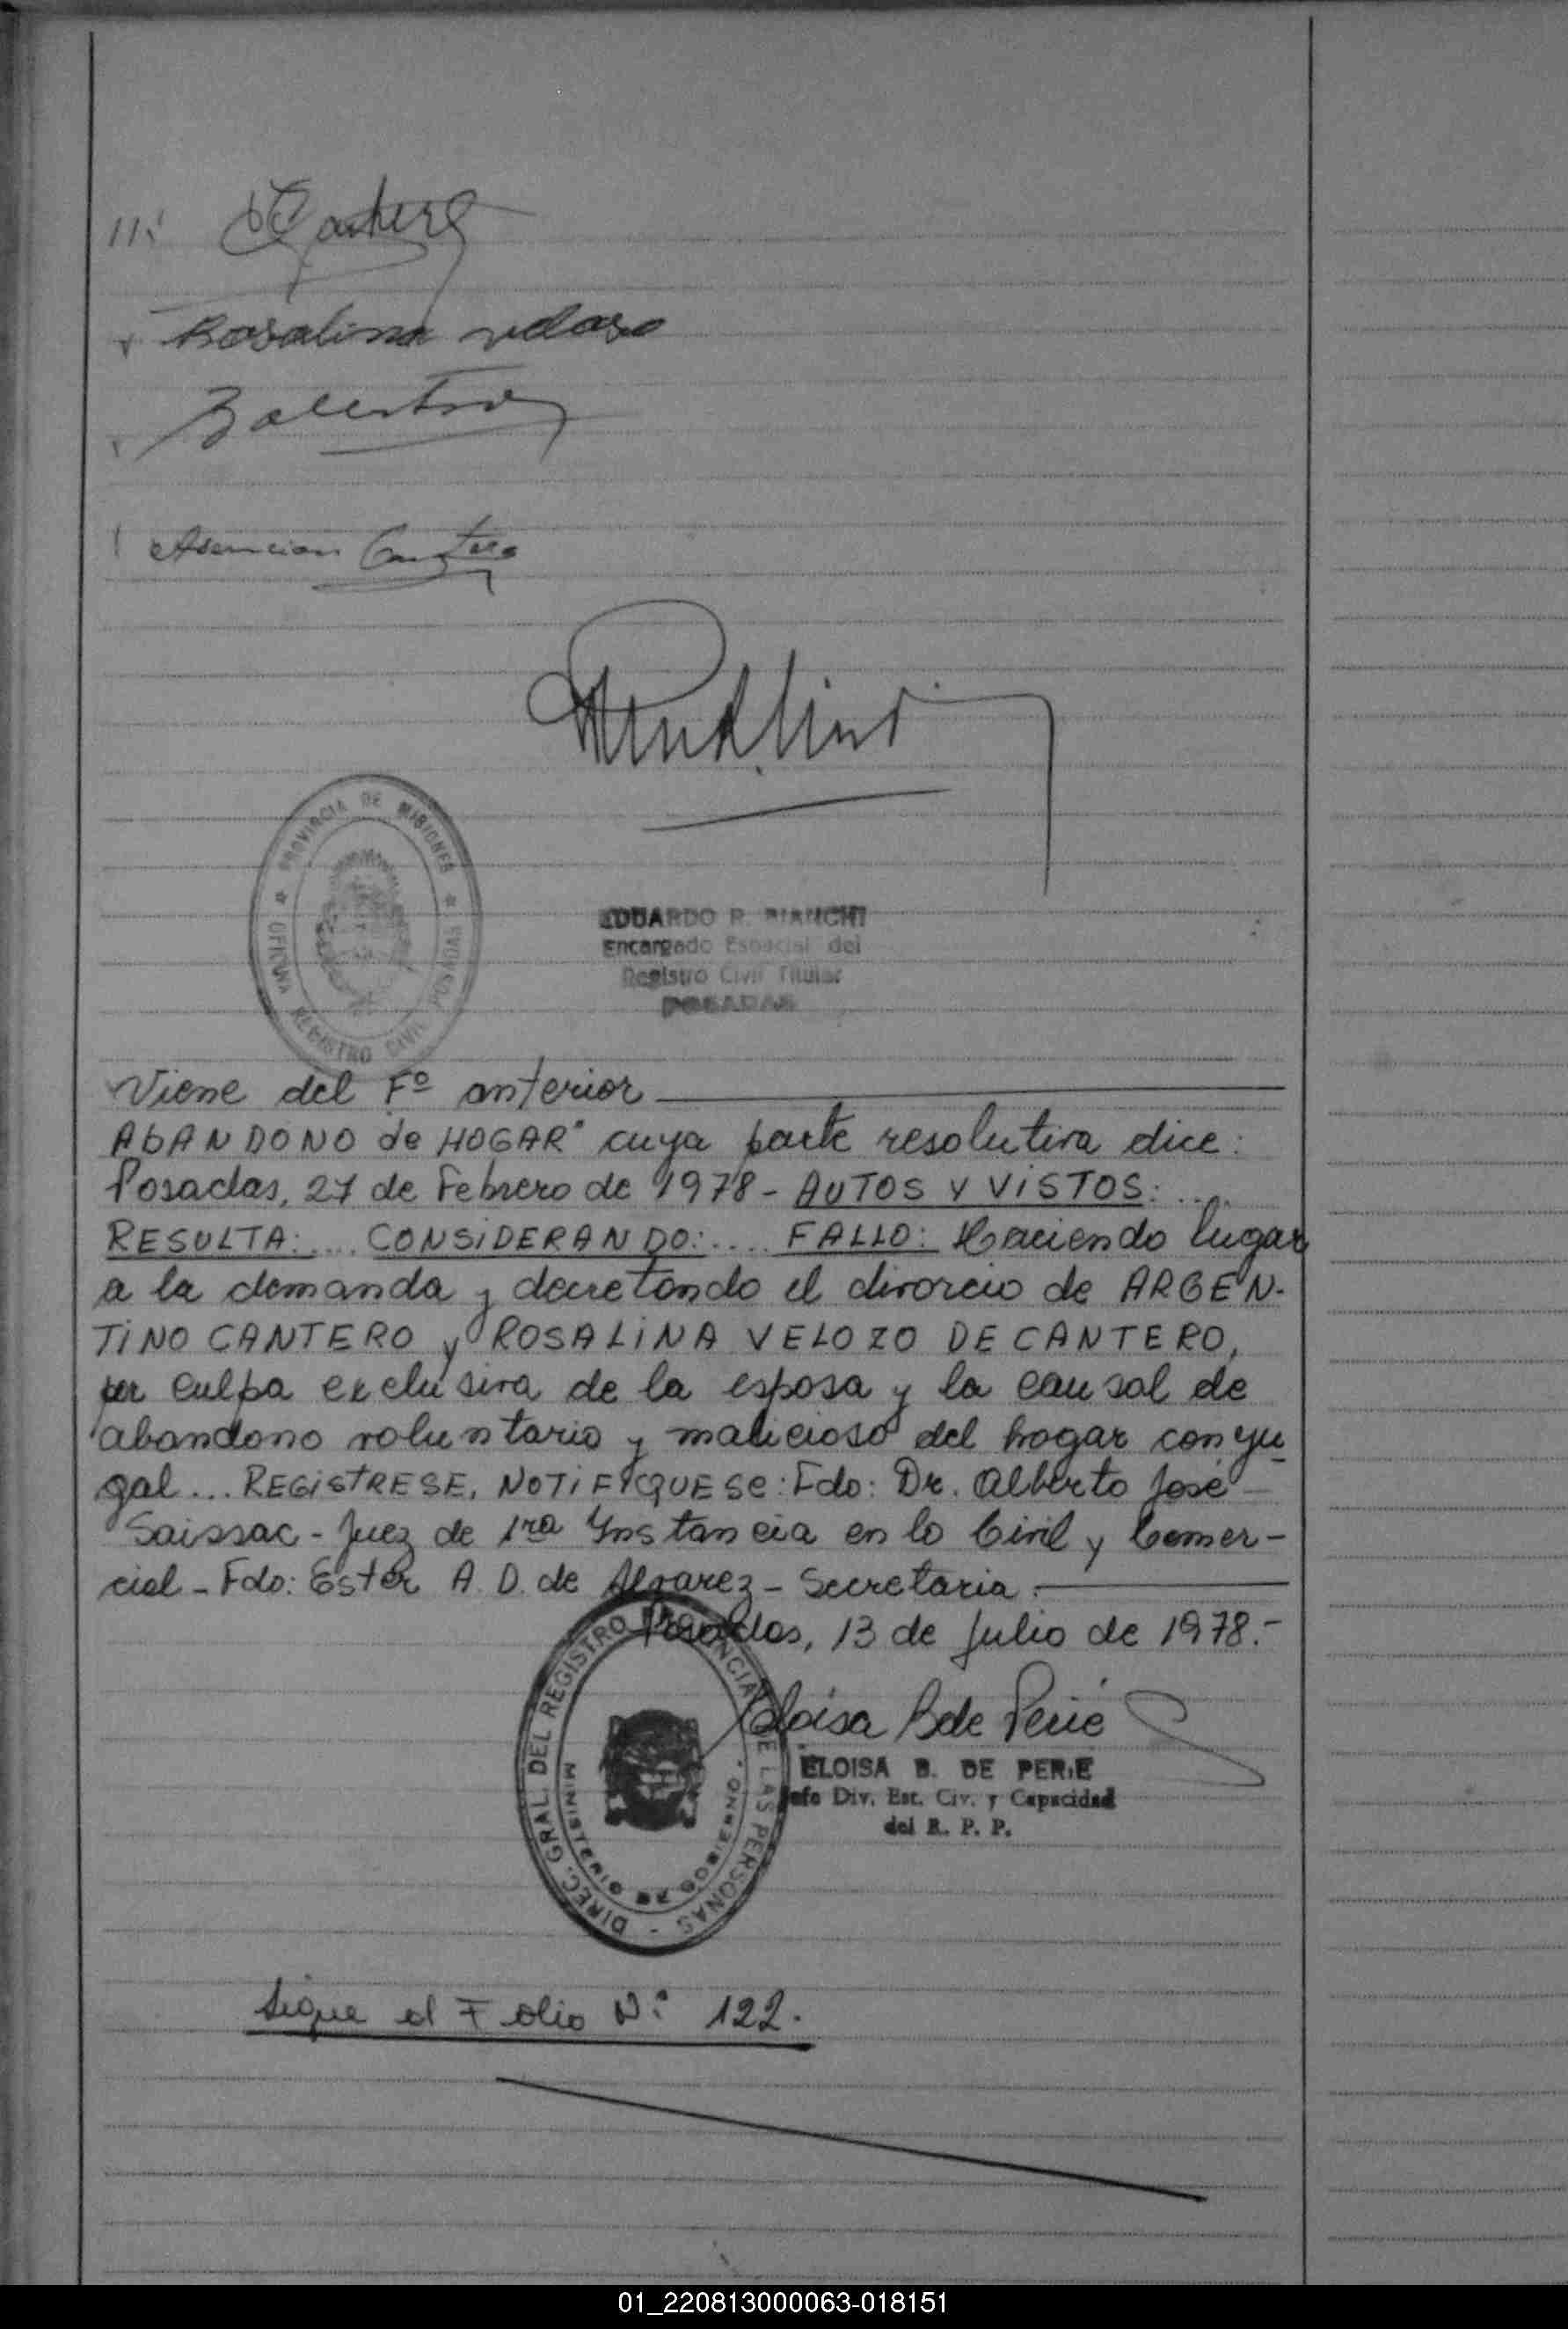 Cantero
Rosalina veloso
Asencion Cantero
PROVINCIA DE MISIONES
OFICINA REGISTRO CIVIL POSADAS
EDUARDO R. BIANCHI
Encargado Especial del
Registro Civil Titular
POSADAS
Viene del Fº anterior
AbANDONO de HOGAR" cuya parte resolutiva dice:
Posadas, 27 de Febrero de 1978- AUTOS Y VISTOS: ....
RESULTA: .... CONSIDERANDO: .... FALLO: Haciendo lugar
a la demanda y decretando el divorcio de ARGEN-
TINO CANTERO y ROSALINA VELOZO DE CANTERO,
por culpa exclusiva de la esposa y la causal de
abandono voluntario y malicioso del hogar conyu-
gal ... REGISTRESE, NOTIFIQUESE: Fdo: Dr. Alberto José
Saissac - Juez de 1ra Instancia en lo Civil y Comer-
cial - Fdo: Ester A. D. de Alvarez - Secretaria.
Posadas, 13 de Julio de 1978.-
Eloisa B de Perié
ELOISA B. DE PERIE
Jefe Div. Est. Civ. y Capacidad
del R. P. P.
DIREC. GRAL. DEL REGISTRO PROVINCIAL DE LAS PERSONAS -
MINISTERIO DE GOBIERNO
Sigue al Folio Nº 122.
01_220813000063-018151